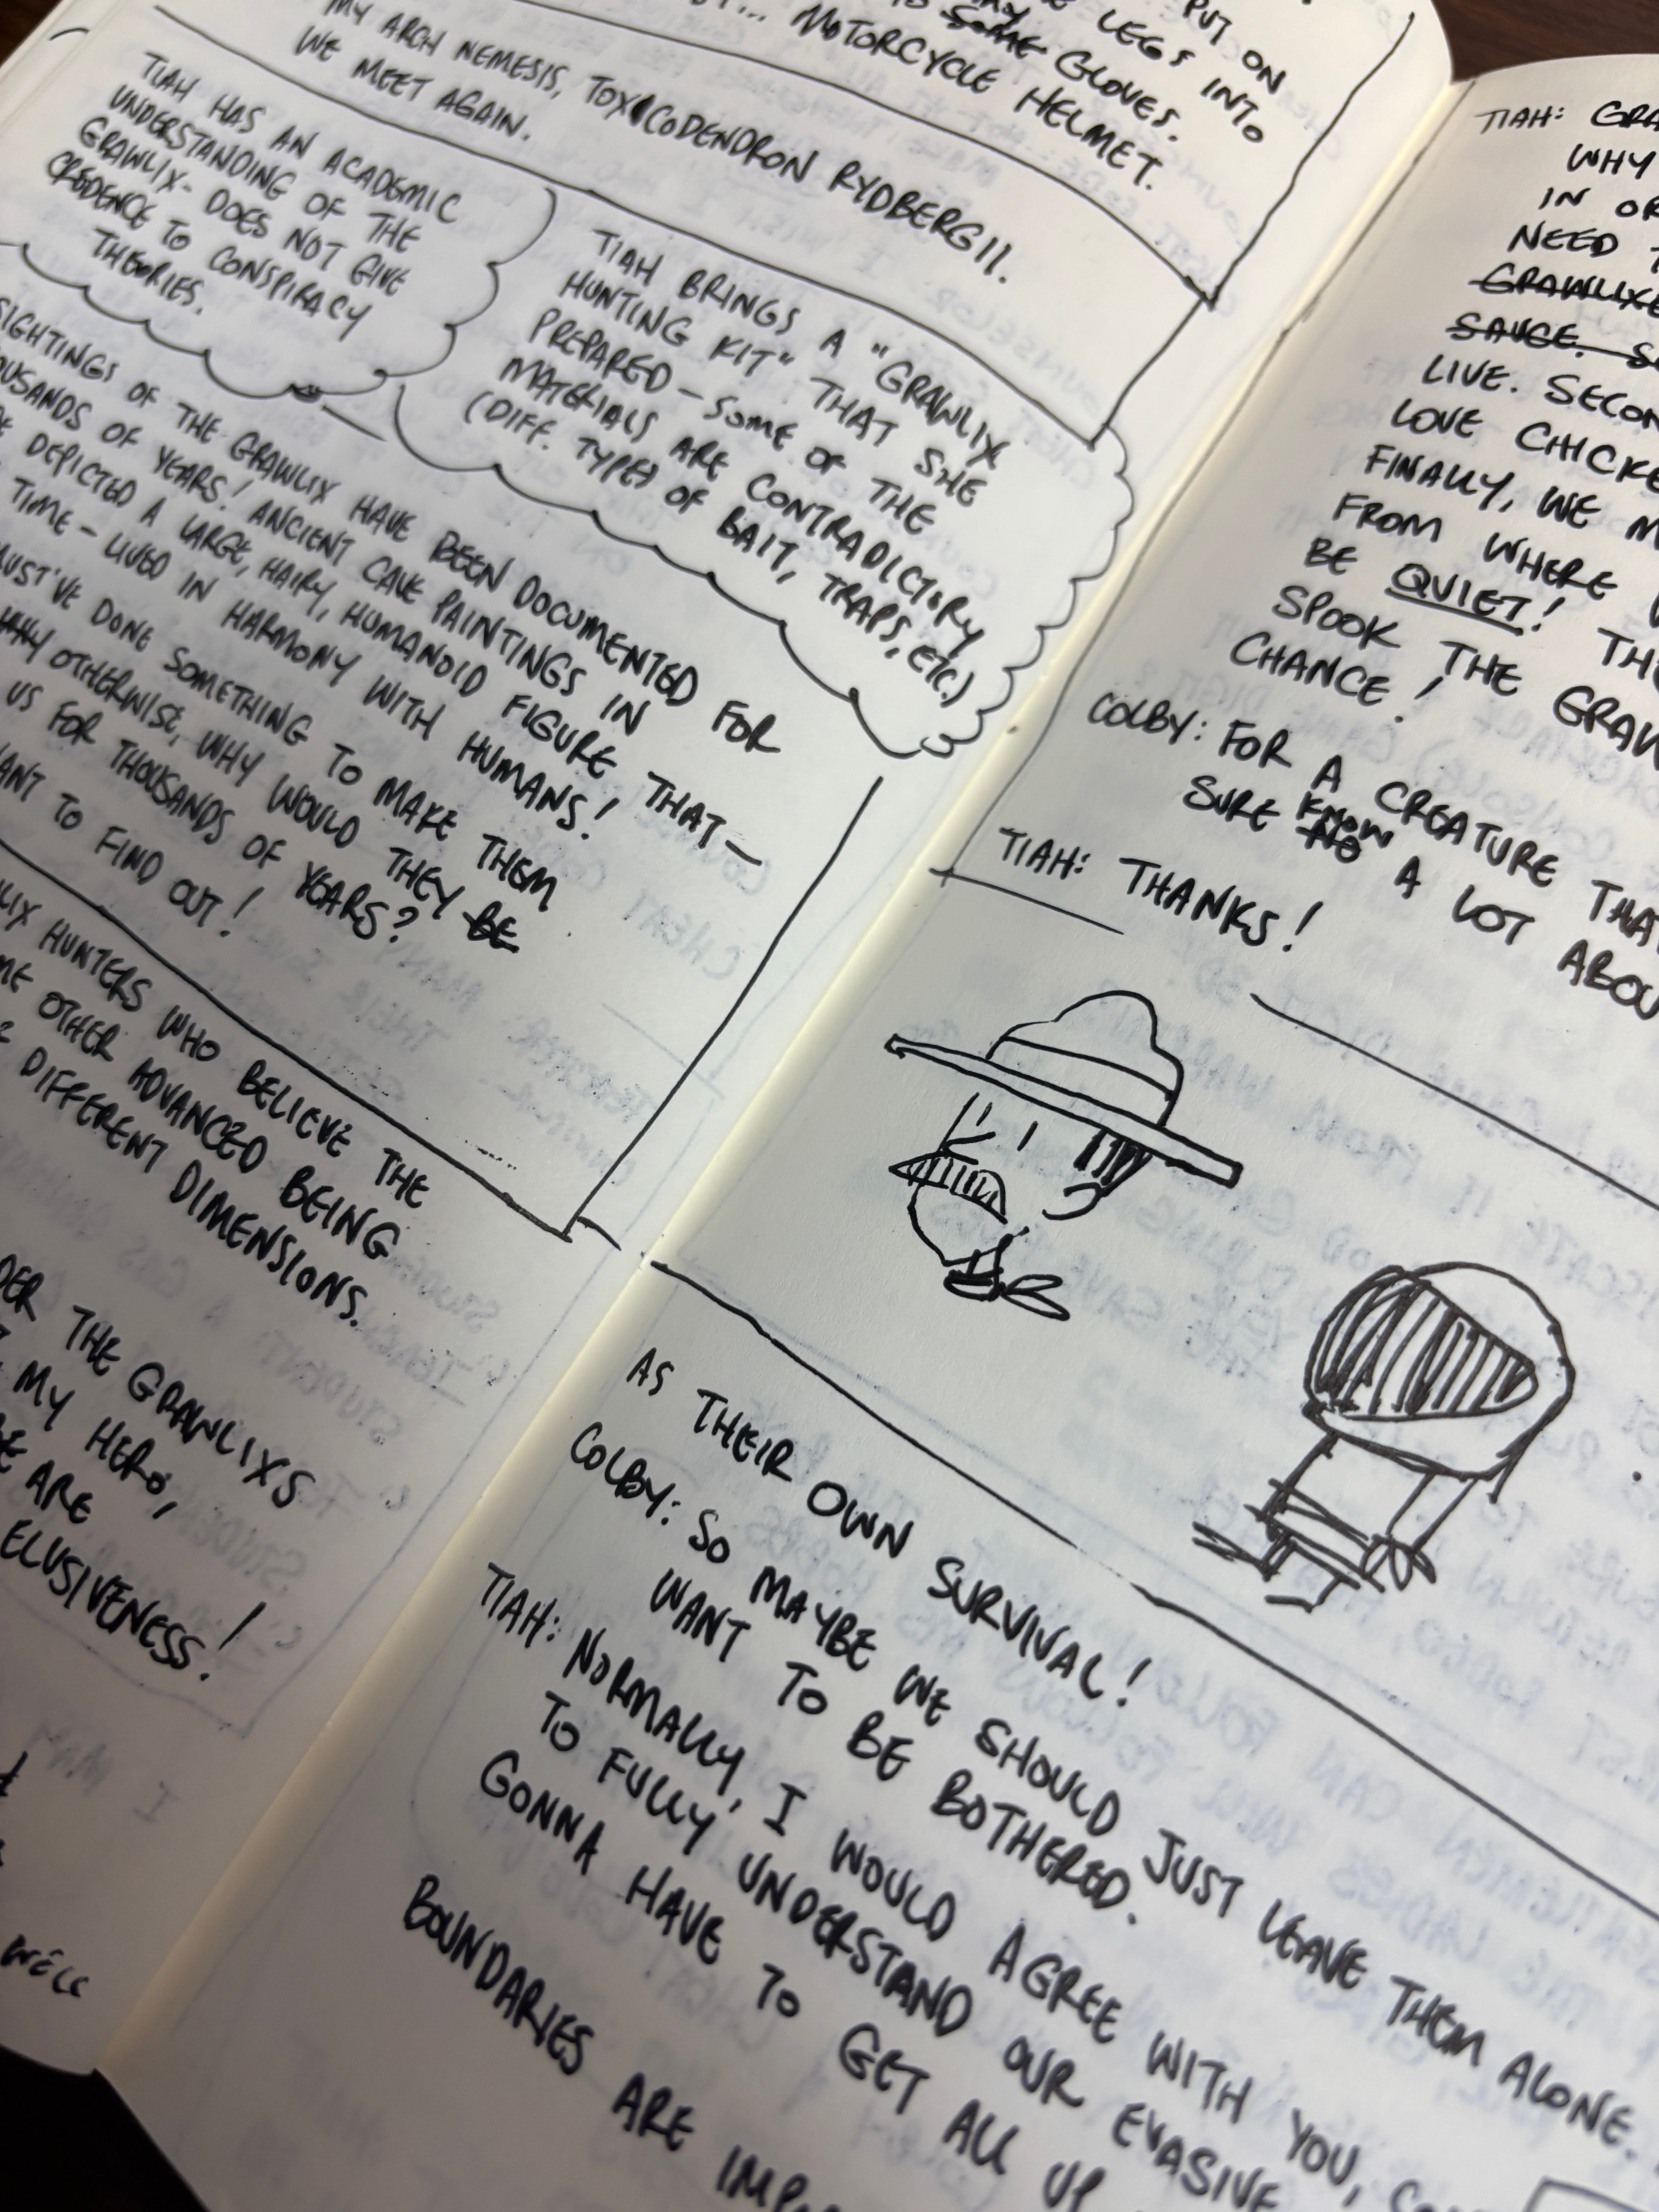 PUT ON
LEGS INTO
SOME GLOVES.
MOTORCYCLE HELMET.
MY ARCH NEMESIS, TOXICODENDRON RYDBERGII.
WE MEET AGAIN.
TIAH HAS AN ACADEMIC
UNDERSTANDING OF THE
GRAWLIX - DOES NOT GIVE
CREDENCE TO CONSPIRACY
THEORIES.
TIAH BRINGS A "GRAWLIX
HUNTING KIT" THAT SHE
PREPARED - SOME OF THE
MATERIALS ARE CONTRADICTORY
(DIFF. TYPES OF BAIT, TRAPS, ETC.)
SIGHTINGS OF THE GRAWLIX HAVE BEEN DOCUMENTED FOR
OF YEARS! ANCIENT CAVE PAINTINGS IN
DEPICTED A LARGE, HAIRY, HUMANOID FIGURE THAT -
TIME - LIVED IN HARMONY WITH HUMANS!
DONE SOMETHING TO MAKE THEM
OTHERWISE, WHY WOULD THEY BE
US FOR THOUSANDS OF YEARS?
TO FIND OUT!
HUNTERS WHO BELIEVE THE
OTHER ADVANCED BEING
DIFFERENT DIMENSIONS.
THE GRAWLIXS
MY HERO,
ARE
ELUSIVENESS!
TIAH:
WHY
IN
NEED
LIVE.
LOVE
FINALLY, WE
FROM WHERE
BE QUIET!
SPOOK THE
CHANCE!
COLBY: FOR A CREATURE
SURE NO KNOW A LOT
TIAH: THANKS!
AS THEIR OWN SURVIVAL!
COLBY: SO MAYBE WE SHOULD JUST LEAVE THEM ALONE.
WANT TO BE BOTHERED.
TIAH: NORMALLY, I WOULD AGREE WITH YOU,
TO FULLY UNDERSTAND OUR EVASIVE
GONNA HAVE TO GET ALL UP
BOUNDARIES ARE